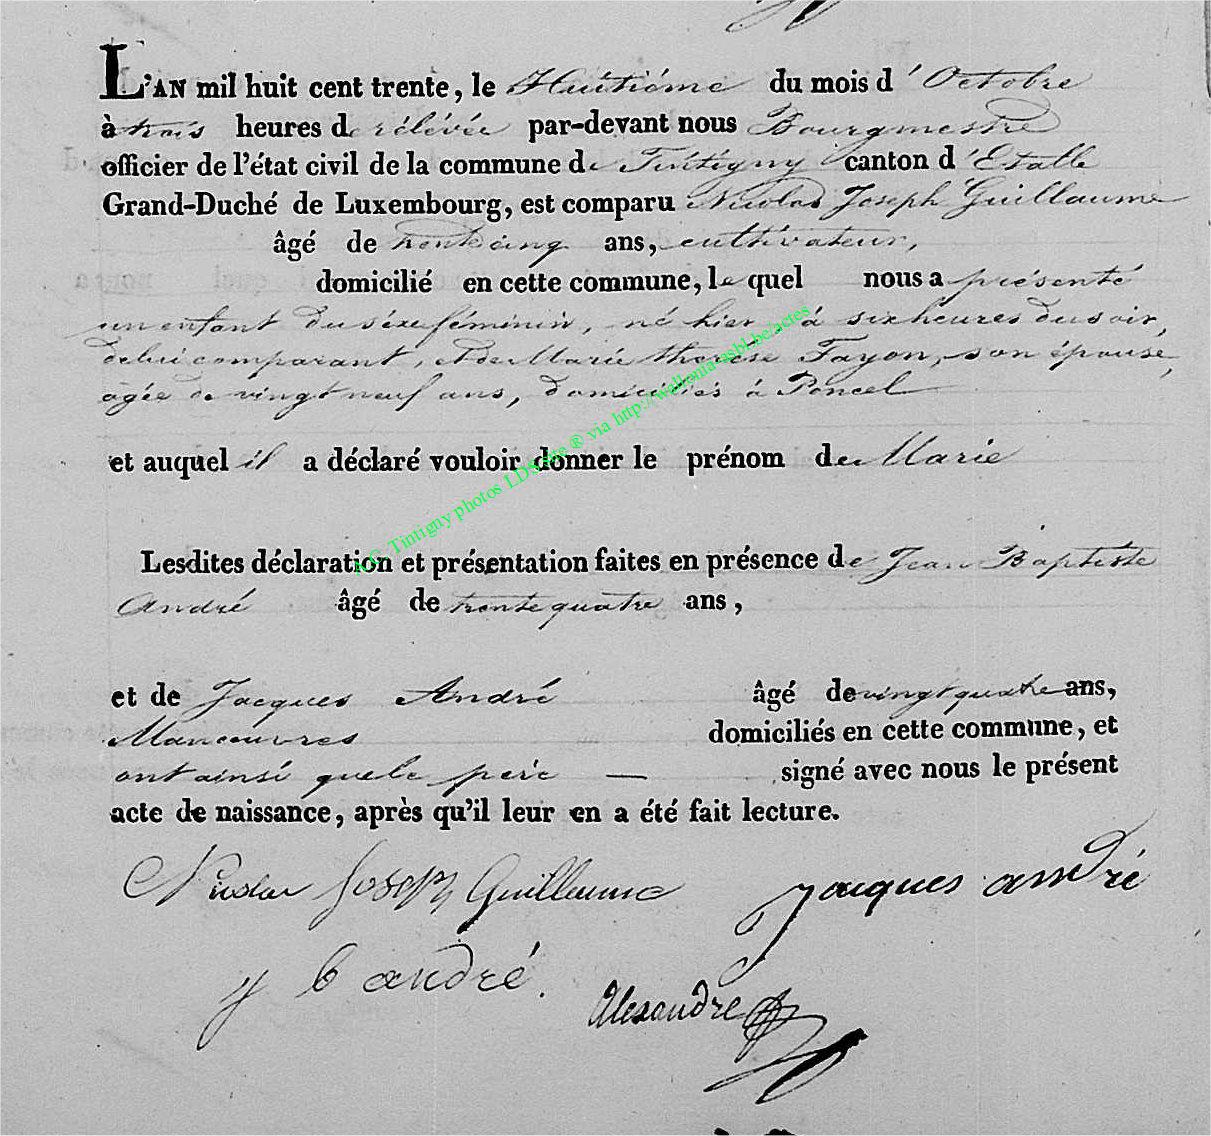 L'AN mil huit cent trente, le Huitiéme du mois d' Octobre
à trois heures de rélévée par-devant nous Bourgmestre
officier de l'état civil de la commune de Tintigny canton d' Etalle
Grand-Duché de Luxembourg, est comparu Nicolas Joseph Guillaume
âgé de trente cinq ans, cultivateur,
domicilié en cette commune, le quel nous a présenté
un enfant du séxe féminin, né hier à six heures du soir,
de lui comparant, et de Marie thérèse Fayon, son épouse,
agée de vingt neuf ans, domiciliés à Poncel
et auquel il a déclaré vouloir donner le prénom de Marie
Lesdites déclaration et présentation faites en présence de Jean Baptiste
André âgé de trente quatre ans,
et de Jacques André âgé de vingt quatre ans,
Manoeuvres domiciliés en cette commune, et
ont ainsi que le père — signé avec nous le présent
acte de naissance, après qu'il leur en a été fait lecture.
Nicolas Joseph Guillaume jacques andré
j b andré.
Alexandre
A.G. Tintigny photos LDS site ® via http://wallonia-asbl.be/actes